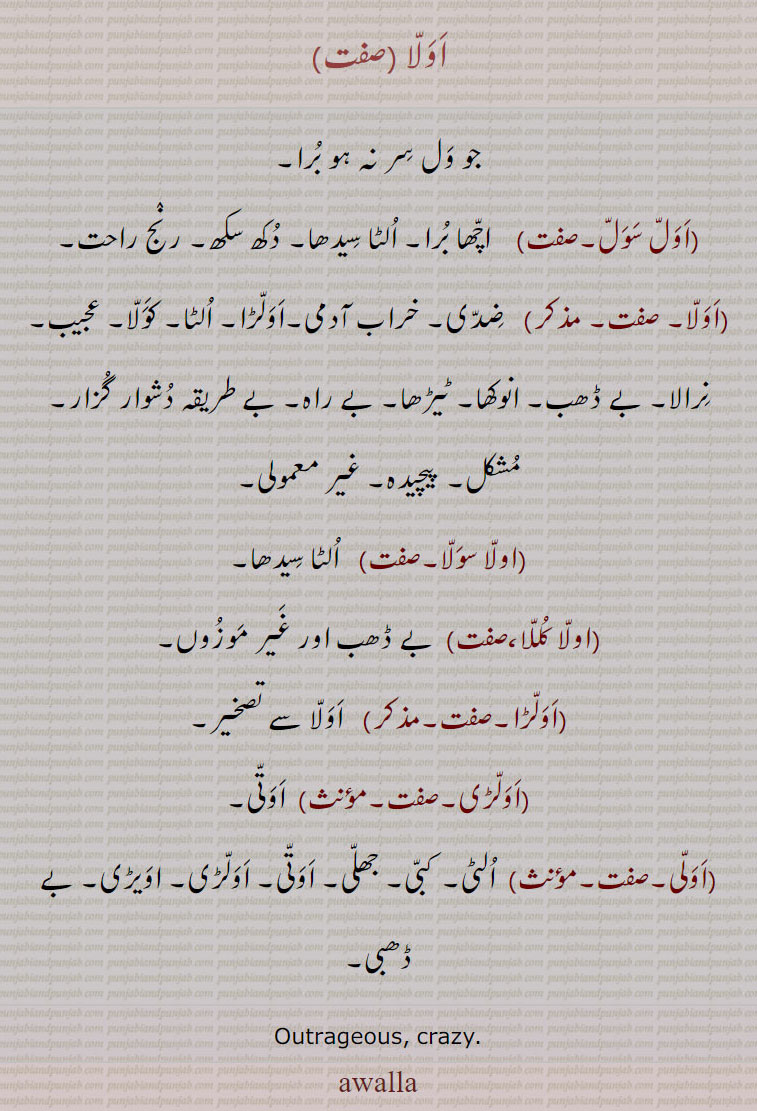 اَوَلّا (صفت)
جو وَل سِر نہ ہو بُرا۔
(اَوَلّ سَوَلّ۔صفت) اچّھا بُرا۔ اُلٹا سِیدھا۔ دُکھ سکھ۔ رنْج راحت۔
(اَوَلّا۔ صفت۔ مذکر) ضِدّی۔ خراب آدمی۔اَوَلّڑا۔ اُلٹا۔ کَوَلّا۔ عجیب۔
نِرالا۔ بے ڈھب۔ انوکھا۔ ٹیڑھا۔ بے راہ۔ بے طریقہ دُشوار گُزار۔
مُشکل۔ پیچیدہ۔ غیر معمولی۔
(اولّا سوَلّا۔صفت) اُلٹا سِیدھا۔
(اولّا کُلّلا،صفت) بے ڈھب اور غَیر مَوزُوں۔
(اَوَلّڑا۔صفت۔مذکر) اَوَلّا سے تصخیر۔
(اَوَلّڑی۔صفت۔مؤنث) اَوَتّی۔
(اَوَلّی۔صفت۔مؤنث) اُلٹی۔ کبّی۔ جھلّی۔ اَوَتّی۔ اَوَلّڑی۔ اوَیڑی۔ بے
ڈھبی۔
Outrageous, crazy.
awalla